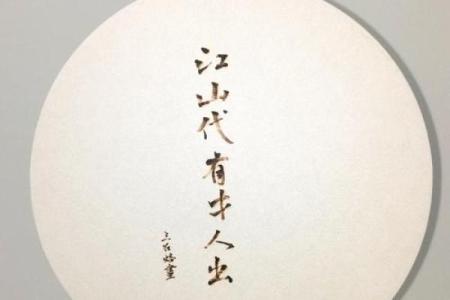 江山代有才人出